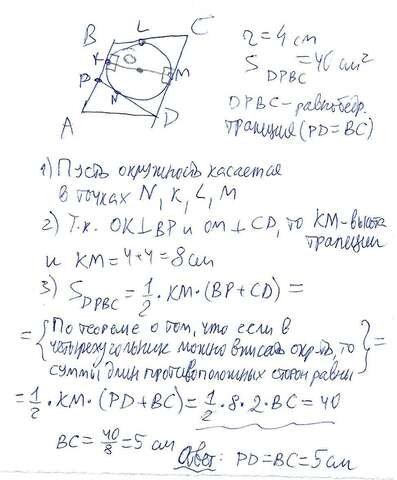 B L C
K O M
P N
A D
r = 4 см
S DPBC = 40 см²
DPBC – равнобедр.
трапеция (PD = BC)
1) Пусть окружность касается
в точках N, K, L, M
2) Т.к. OK⊥BP и OM⊥CD, то KM – высота
трапеции
и KM = 4+4 = 8 см
3) S DPBC = 1/2 · KM · (BP + CD) =
= {По теореме о том, что если в
четырехугольник можно вписать окр-ть, то
суммы длин противоположных сторон равны} =
= 1/2 · KM · (PD + BC) = 1/2 · 8 · 2 · BC = 40
BC = 40/8 = 5 см
Ответ: PD = BC = 5 см